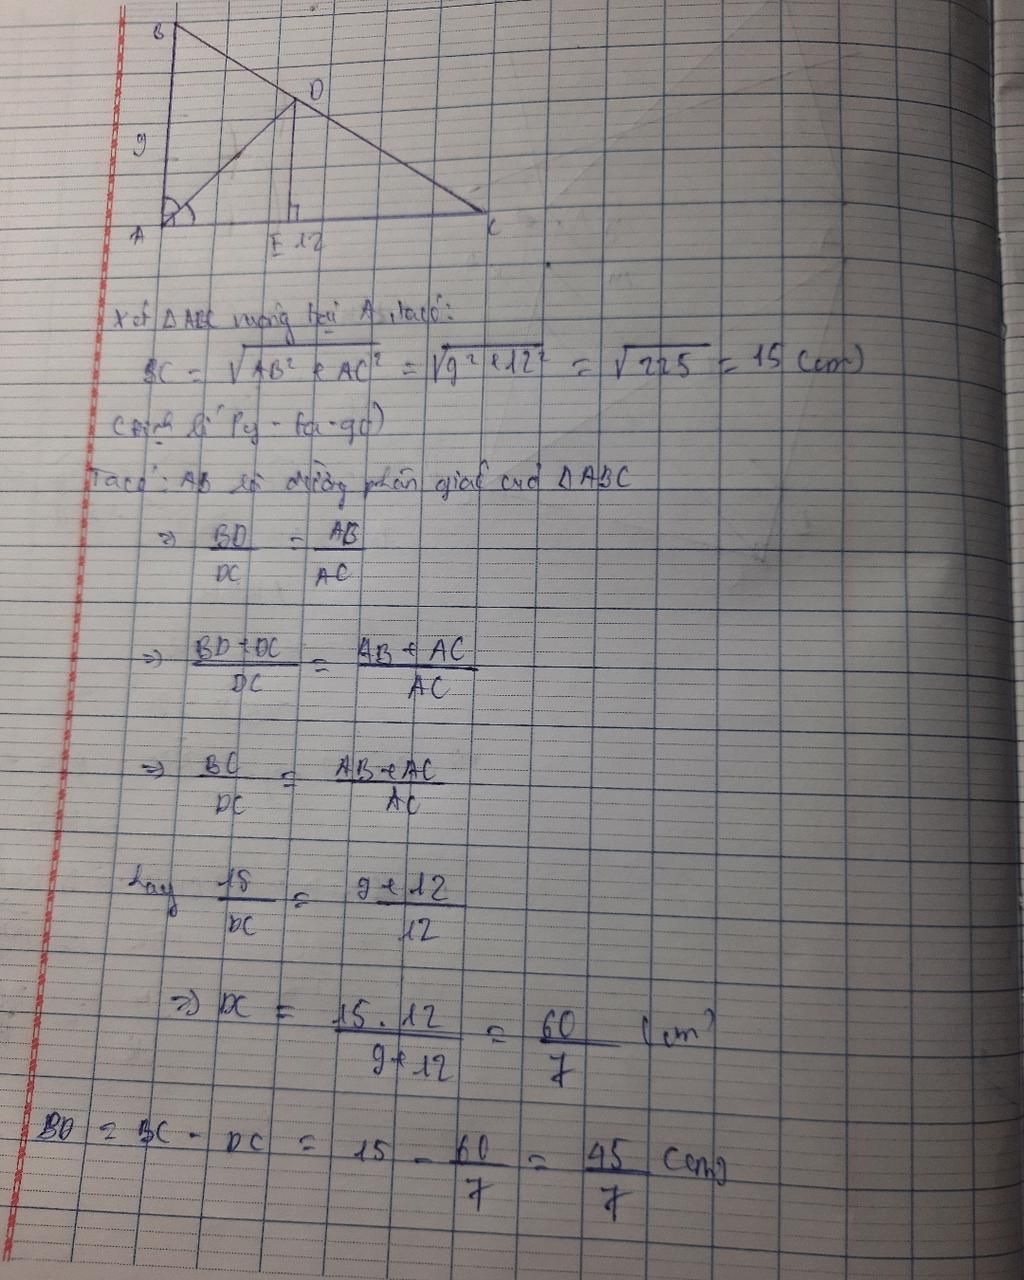 B
D
9
A
E 12
C
Xét ΔABC vuông tại A, ta có:
BC = √AB² + AC² = √9² + 12² = √225 = 15 (cm)
(định lí Py-ta-go)
Ta có: AB là đường phân giác của ΔABC
⇒ BD/DC = AB/AC
⇒ BD + DC/DC = AB + AC/AC
⇒ BC/DC = AB + AC/AC
hay 15/DC = 9 + 12/12
⇒ DC = 15.12/9 + 12 = 60/7 (cm)
BD = BC - DC = 15 - 60/7 = 45/7 (cm)